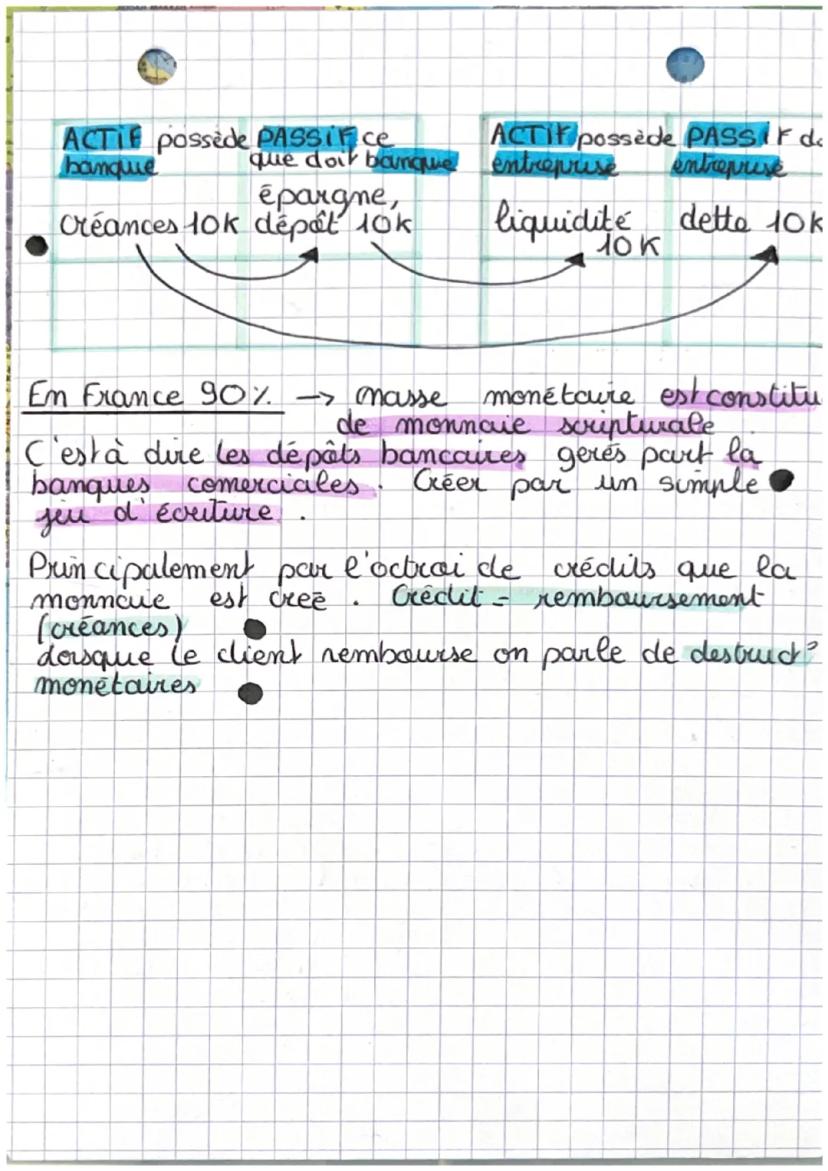 ACTIF possède PASSIF ce
banque que doit banque
épargne,
créances 10K dépôt 10K
ACTIF possède PASSIF d
entreprise entreprise
liquidité dette 10K
10K
En France 90% → masse monétaire est constitu
de monnaie scripturale
C'est à dire les dépôts bancaires gerés part la
banques comerciales. Créer par un simple
jeu d'écriture.
Principalement par l'octroi de crédits que la
monnaie est creé. Crédit = remboursement
(créances)
Lorsque le client rembourse on parle de destruct°
monétaires